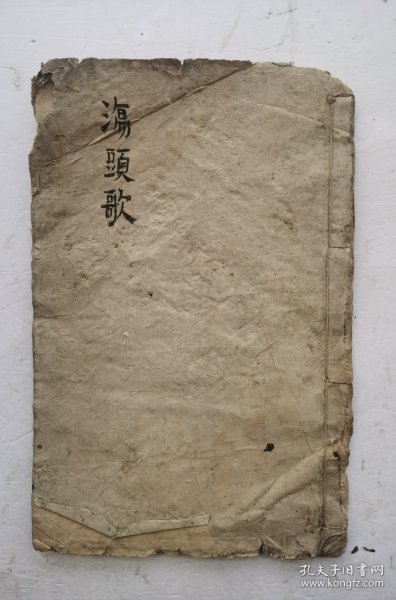 湯頭歌
八
孔夫子旧书网
www.kongfz.com